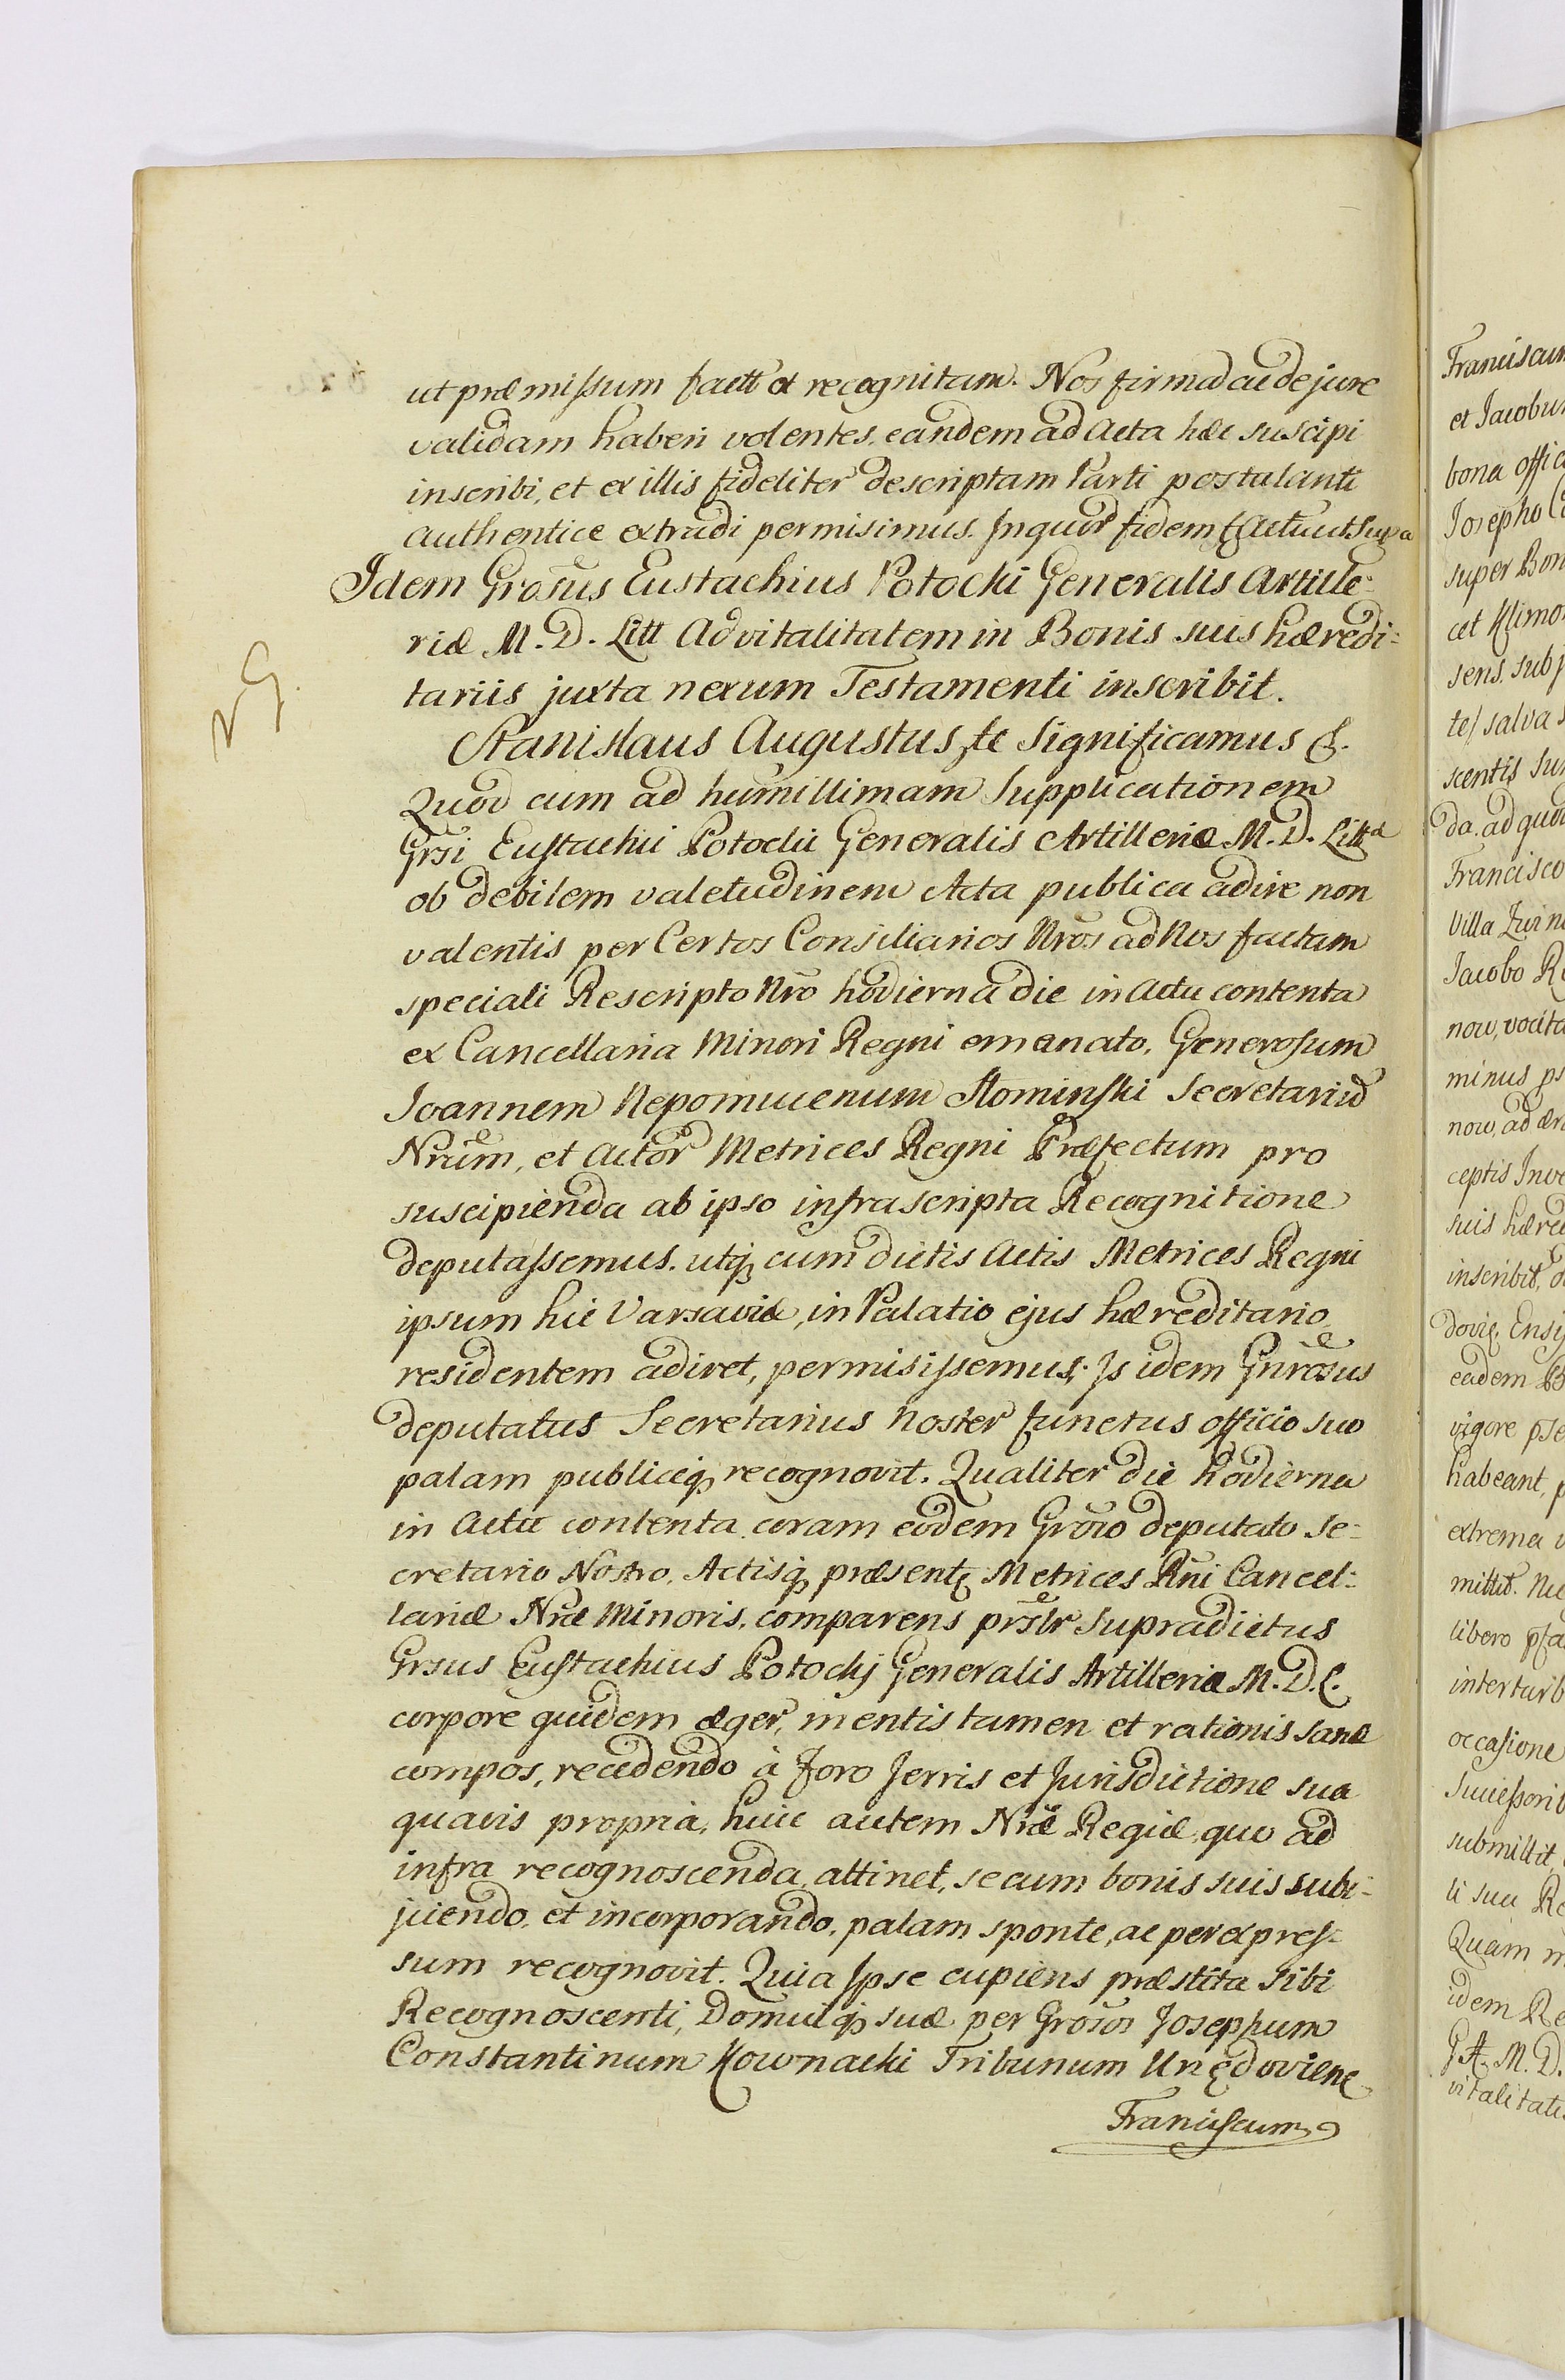 ut præmissum factt et recognitam. Nos firmā ac de jure
validam haberi volentes, eandem ad Acta hæc suscipi
inscribi, et ex illis fideliter descriptam Parti postulanti
authentice extradi permisimus. In quor̄ fidem & Actū ut Supra
Idem Grosūs Eustachius Potocki Generalis Artille=
riæ M. D. Litt Advitalitatem in Bonis suis hæredi=
tariis juxta nexum Testamenti inscribit.
NG.
Stanislaus Augustus, te Significamus &.
Quod cum ad humillimam Supplicationem
Grsi Eustachii Potocki Generalis Artilleriæ M. D. Litt
ob debilem valetudinem Acta publica adire non
valentis per Certos Consiliarios Nrōs ad Nos factam
speciali Rescripto Nrō hodierna die in Actu contenta
ex Cancellaria Minori Regni emanato, Generosum
Joannem Nepomucenum Słominski Secretariū
Nrūm, et Actor̄ Metrices Regni Præfectum pro
suscipienda ab ipso infrascripta Recognitione
deputassemus, utq; cum dictis Actis Metrices Regni
ipsum hic Varsaviæ, in Palatio ejus hæreditario
residentem adiret, permisissemus; Is idem Gnrōsus
deputatus Secretarius Noster functus officio suo
palam publiceq; recognovit. Qualiter die hodierna
in Actu contenta coram eodem Grōso deputato Se=
cretario Nostro, Actisq; præsent; Metrices Rñi Cancel=
lariæ Nræ Minoris, comparens prsltr Supradictus
Grsus Eustachius Potockj Generalis Artilleriæ M. D. L.
corpore quidem æger, mentis tamen et rationis sanæ
compos, recedendo à Foro Terris et Jurisdictione sua
quavis propria, huic autem Nræ Regiæ, quo ad
infra recognoscenda attinet, se cum bonis suis subi=
jiendo, et incorporando, palam sponte, ac per expres=
sum recognovit. Quia Ipse cupiens præstita Sibi
Recognoscenti, Domuiq; suæ per Grosōs Josephum
Constantinum Kownacki Tribunum
Franciscum
Franciscum
et Jacobum
bona offic
Josepho
super Bon
cet Klimo
sens, subj
te/ salva
scentis
da, ad quod
Francisco
Villa
Jacobo
now, vocita
minus
now, ad
ceptis
suis hæred
inscribit,
eadem
vigore
habeant,
extrema
mittit.
libero
interturb
occasione
Successorib
submittit,
li suu
Quam
idem
M. D.
vitalitati